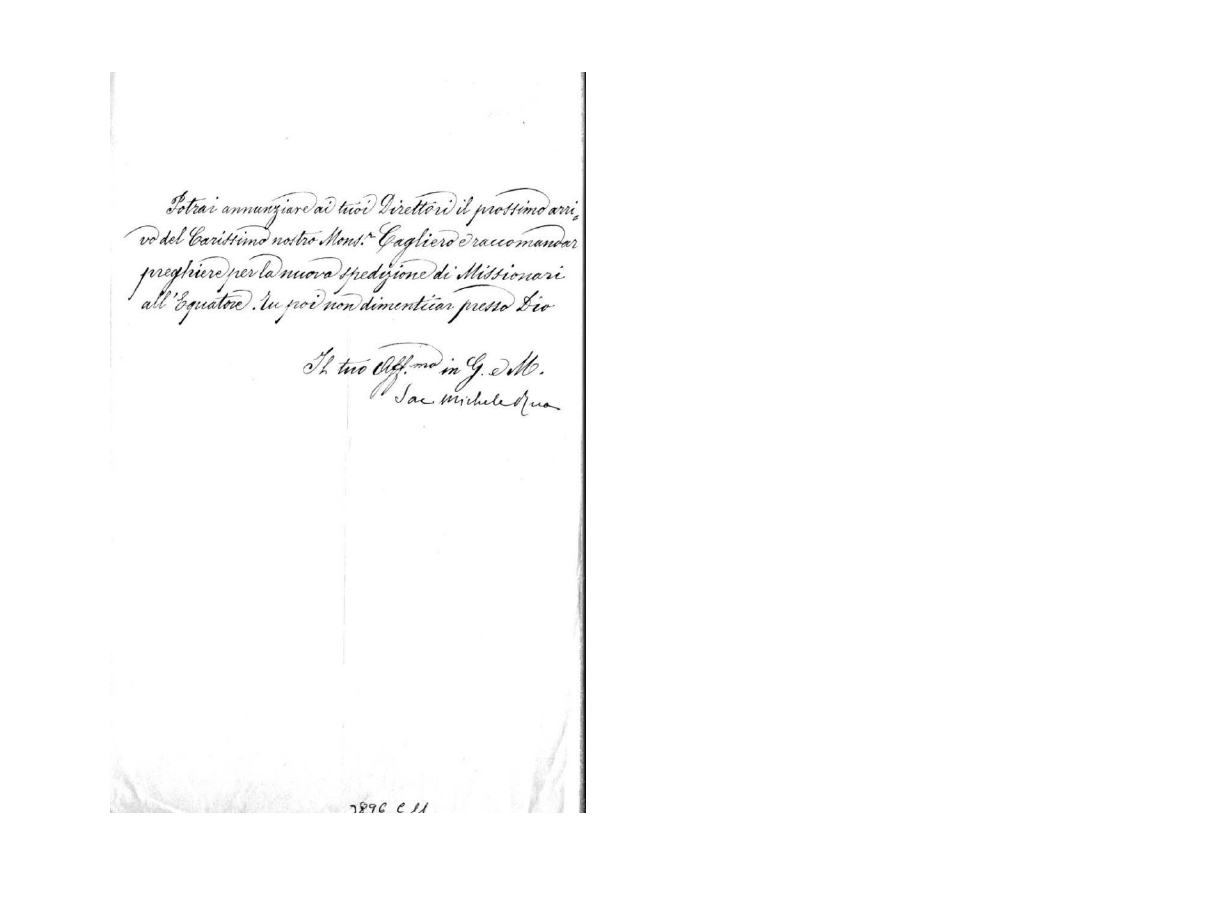 Potrai annunziare ai tuoi Direttori il prossimo arri=
vo del Carissimo nostro Mons.r Cagliero e raccomandar
preghiere per la nuova spedizione di Missionari
all'Equatore. Tu poi non dimenticar presso Dio
Il tuo Aff.mo in G. e M.
Sac. Michele Rua